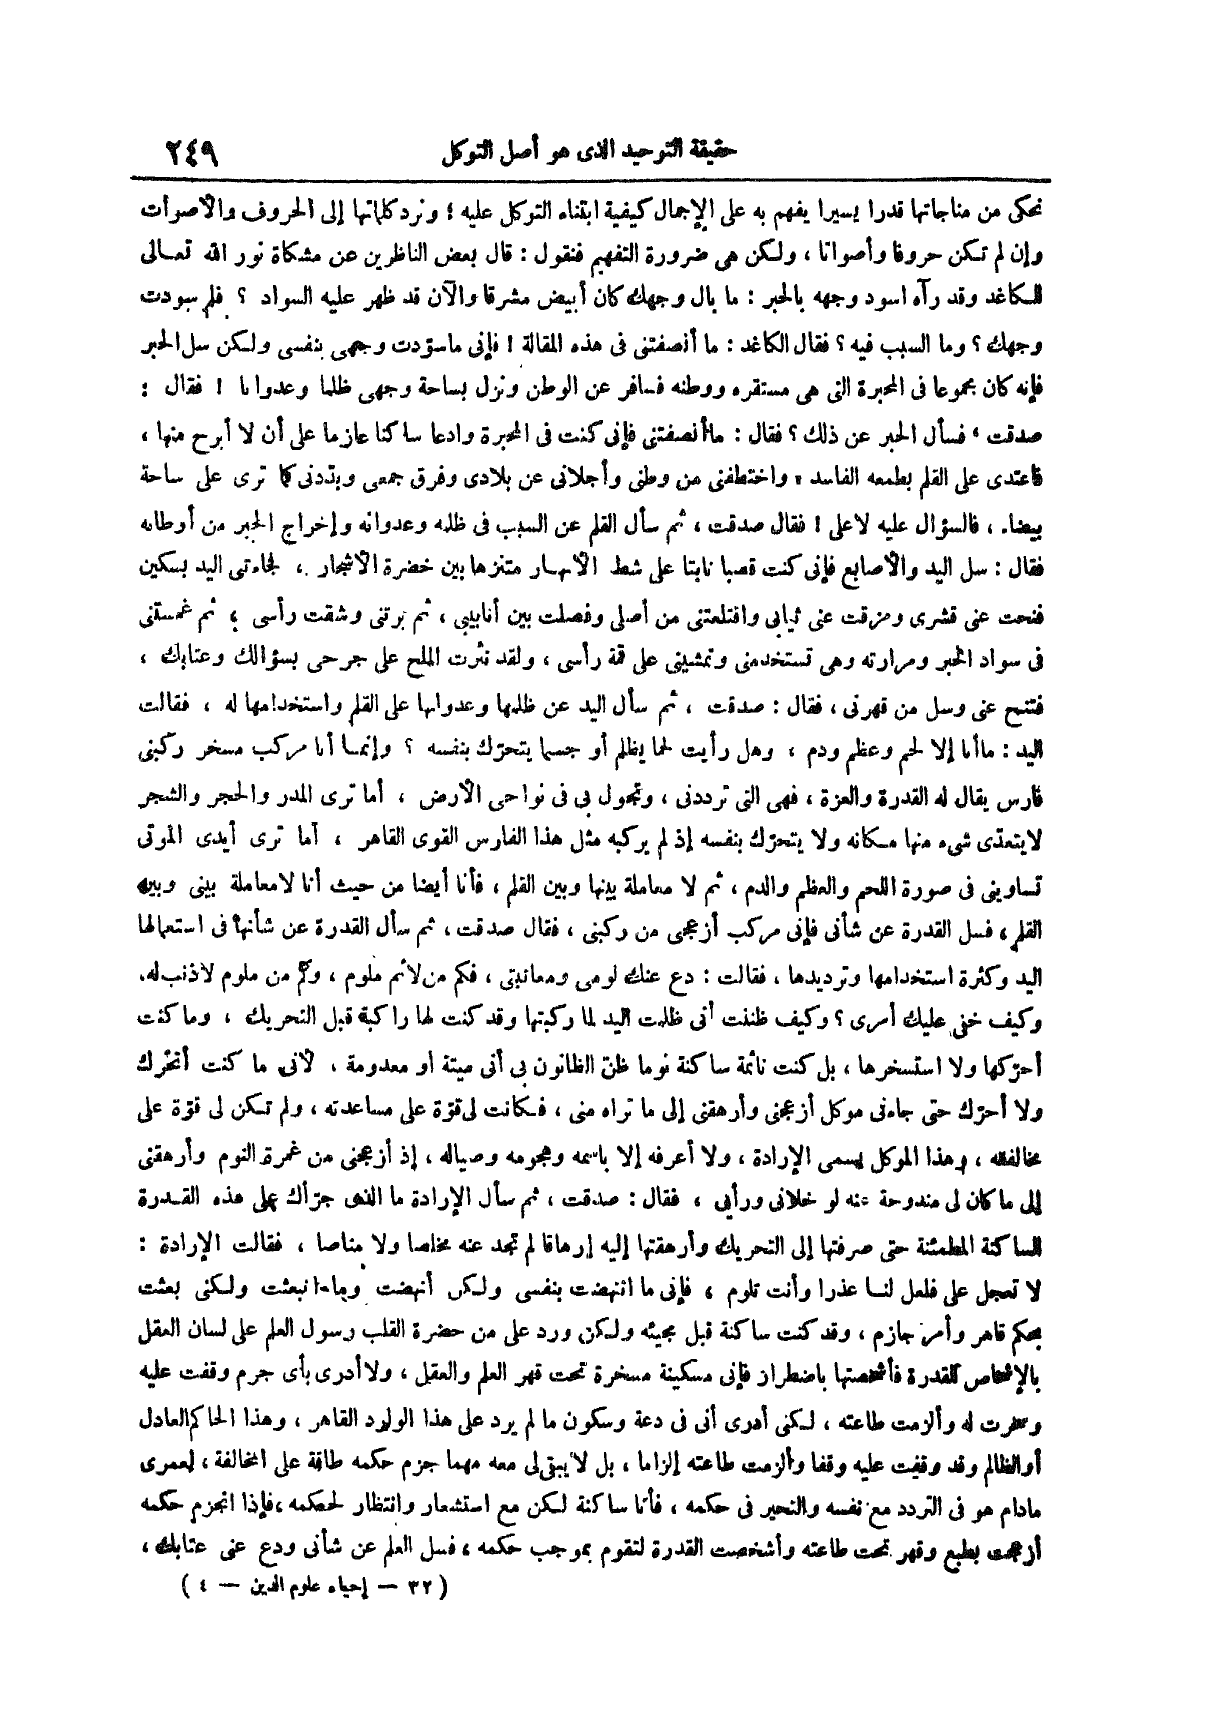 حقيقة التوحيد الذى هو أصل التوكل ٢٤٩
نحكى من مناجاتها قدرا يسيرا يفهم به على الإجمال كيفية ابتناء التوكل عليه ؛ ونرد كلماتها إلى الحروف والأصوات
وإن لم تكن حروفا وأصواتا ، ولكن هى ضرورة التفهيم فنقول : قال بعض الناظرين عن مشكاة نور الله تعالى
للكاغد وقد رآه اسود وجهه بالحبر : ما بال وجهك كان أبيض مشرقا والآن قد ظهر عليه السواد ؟ فلم سودت
وجهك ؟ وما السبب فيه ؟ فقال الكاغد : ما أنصفتنى فى هذه المقالة ! فإنى ماسوّدت وجهى بنفسى ولكن سل الحبر
فإنه كان مجموعا فى المحبرة التى هى مستقره ووطنه فسافر عن الوطن ونزل بساحة وجهى ظلما وعدوانا ! فقال :
صدقت ، فسأل الحبر عن ذلك ؟ فقال : ماأنصفتنى فإنى كنت فى المحبرة وادعا ساكنا عازما على أن لا أبرح منها ،
فاعتدى على القلم بطمعه الفاسد ، واختطفنى من وطنى وأجلانى عن بلادى وفرق جمعى وبدّدنى كما ترى على ساحة
بيضاء ، فالسؤال عليه لاعلى ! فقال صدقت ، ثم سأل القلم عن السبب فى ظلمه وعدوانه وإخراج الحبر من أوطانه
فقال : سل اليد والأصابع فإنى كنت قصبا نابتا على شط الأنهار متنزها بين خضرة الأشجار ، فجاءتى اليد بسكين
فنحت عنى قشرى ومزقت عنى ثيابى واقتلعتنى من أصلى وفصلت بين أنابيبى ، ثم برتنى وشقت رأسى ، ثم غمستنى
فى سواد الحبر ومرارته وهى تستخدمنى وتمشينى على قمة رأسى ، ولقد نثرت الملح على جرحى بسؤالك وعتابك ،
فتنح عنى وسل من قهرنى ، فقال : صدقت ، ثم سأل اليد عن ظلمها وعدوانها على القلم واستخدامها له ، فقالت
اليد : ماأنا إلا لحم وعظم ودم ، وهل رأيت لحما يظلم أو جسما يتحرّك بنفسه ؟ وإنما أنا مركب مسخر ركبنى
فارس يقال له القدرة والعزة ، فهى التى ترددنى ، وتجول بى فى نواحى الأرض ، أما ترى المدر والحجر والشجر
لايتعدّى شىء منها مكانه ولا يتحرّك بنفسه إذ لم يركبه مثل هذا الفارس القوى القاهر ، أما ترى أيدى الموتى
تساوينى فى صورة اللحم والعظم والدم ، ثم لا معاملة بينها وبين القلم ، فأنا أيضا من حيث أنا لامعاملة بينى وبين
القلم ، فسل القدرة عن شأنى فإنى مركب أزعجى من ركبنى ، فقال صدقت ، ثم سأل القدرة عن شأنها فى استعمالها
اليد وكثرة استخدامها وترديدها ، فقالت : دع عنك لومى ومعاتبتى ، فكم من لائم ملوم ، وكم من ملوم لاذنب له.
وكيف خفى عليك أمرى ؟ وكيف ظننت أنى ظلمت اليد لما ركبتها وقد كنت لها راكبة قبل التحريك ، وما كنت
أحرّكها ولا استسخرها ، بل كنت نائمة ساكنة نوما ظنّ الظانون بى أنى ميتة أو معدومة ، لأنى ما كنت أتحرّك
ولا أحرّك حتى جاءنى موكل أزعجنى وأرهقنى إلى ما تراه منى ، فكانت لى قوّة على مساعدته ، ولم تكن لى قوّة على
مخالفته ، وهذا الموكل يسمى الإرادة ، ولا أعرفه إلا باسمه وهجومه وصياله ، إذ أزعجنى من غمرة النوم وأرهقنى
إلى ما كان لى مندوحة عنه لو خلانى ورأيى ، فقال : صدقت ، ثم سأل الإرادة ما الذى جرّأك على هذه القدرة
الساكنة المطمئنة حتى صرفتها إلى التحريك وأرهقتها إليه إرهاقا لم تجد عنه مخلصا ولا مناصا ، فقالت الإرادة :
لا تعجل على فلعل لنا عذرا وأنت تلوم ، فإنى ما انتهضت بنفسى ولكن أنهضت وما انبعثت ولكنى بعثت
بحكم قاهر وأمر جازم ، وقد كنت ساكنة قبل مجيئه ولكن ورد على من حضرة القلب رسول العلم على لسان العقل
بالإشخاص للقدرة فأشخصتها باضطرار فإنى مسكينة مسخرة تحت قهر العلم والعقل ، ولاأدرى بأى جرم وقفت عليه
وسخرت له وألزمت طاعته ، لكنى أدرى أنى فى دعة وسكون ما لم يرد على هذا الوارد القاهر ، وهذا الحاكم العادل
أو الظالم وقد وقفت عليه وقفا وألزمت طاعته إلزاما ، بل لا يبقى لى معه مهما جزم حكمه طاقة على المخالفة ، لعمرى
مادام هو فى التردد مع نفسه والتحير فى حكمه ، فأنا ساكنة لكن مع استشعار وانتظار لحكمه ، فإذا انجزم حكمه
أزعجت بطبع وقهر تحت طاعته وأشخصت القدرة لتقوم بموجب حكمه ، فسل العلم عن شأنى ودع عنى عتابك ،
( ٣٢ — إحياء علوم الدين — ٤ )